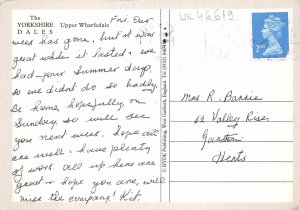 The
YORKSHIRE
DALES
Upper Wharfedale
Fri. Our
week has gone, but it was
great while it lasted & we
had four Summer days,
so we didn't do so badly.
Be home, hopefully, on
Sunday, so will see
you next week. hope all
are well. have plenty
of work all up here are
great & hope you are, will
miss the company! Kit.
© HYDE Publishing, West Garforth, England Tel (0532)
UK46619
2ND
Mrs R.
62 Valley Rise
Garston
Herts